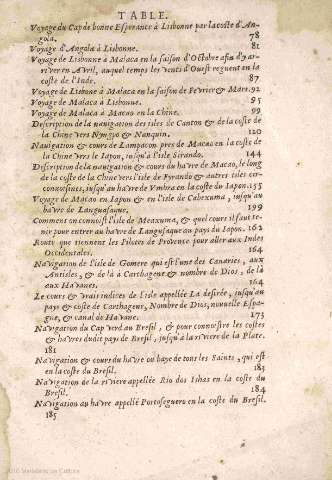 TABLE.
Voyage du Cap de bonne Esperance à Lisbonne par la coste d'An-
gola. 78
Voyage d'Angola à Lisbonne. 81
Voyage de Lisbonne à Malaca en la saison d'Octobre afin d'ar-
river en Avril, auquel temps les vents d'Ouest regnent en la
coste de l'Inde. 87
Voyage de Lisbone à Malaca en la saison de Fevrier & Mars. 92
Voyage de Malaca à Lisbonne. 95
Voyage de Malaca à Macao en la Chine. 99
Description de la navigation des isles de Canton & de la coste de
la Chine vers Nyngpo & Nanquin. 120
Navigation & cours de Lampacon pres de Macao en la coste de
la Chine vers le Iapon, iusqu'à l'isle Firando. 144
Description de la navigation & cours du havre de Macao, le long
de la coste de la Chine vers l'isle de Fyrando & autres isles cir-
convoisines, iusqu'au havre de Vmbra en la coste du Iapon 155
Voyage de Macao en Iapon & en l'isle de Cabexuma, iusqu'au
havre de Languesaque. 199
Comment on connoist l'isle de Meaxuma, & quel cours il faut te-
nir pour entrer au havre de Languesaque au pays du Iapon. 162
Route que tiennent les Pilotes de Provence pour aller aux Indes
Occidentales. 164
Navigation de l'isle de Gomere qui est l'une des Canaries, aux
Antilles, & de là à Carthagene & nombre de Dios, de là
aux Havanes. 164
Le cours & vrais indices de l'isle appellée La desirée, iusqu'au
pays & coste de Carthagene, Nombre de Dios, nouvelle Espa-
gne, & canal de Havane. 173
Navigation du Cap verd au Bresil, & pour connoistre les costes
& havres dudit pays de Bresil, iusqu'à la riviere de la Plate.
181
Navigation & cours du havre ou baye de tous les Saints, qui est
en la coste du Bresil. 183
Navigation de la riviere appellée Rio dos Ilhas en la coste du
Bresil. 184
Navigation au havre appellé Portoseguero en la coste du Bresil.
185